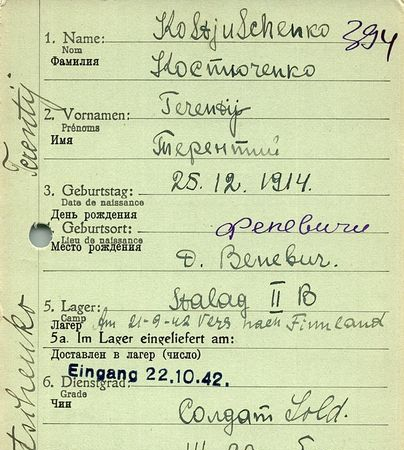 KoStjuSchenko 394
1. Name:
Nom
Фамилия Костюченко
Terentij
2. Vornamen:
Prénoms
Имя Терентий
3. Geburtstag: 25. 12. 1914.
Date de naissance
День рождения
4. Geburtsort: Феневичи
Lieu de naissance
Место рождения Д. Веневич.
5. Lager: Stalag II B
Camp
Лагерь Am 21-9-42 Vers nach Finnland
5a. Im Lager eingeliefert am:
Доставлен в лагер (число)
Eingang 22.10.42.
6. Dienstgrad:
Grade
Чин Солдат Sold.
Terentij